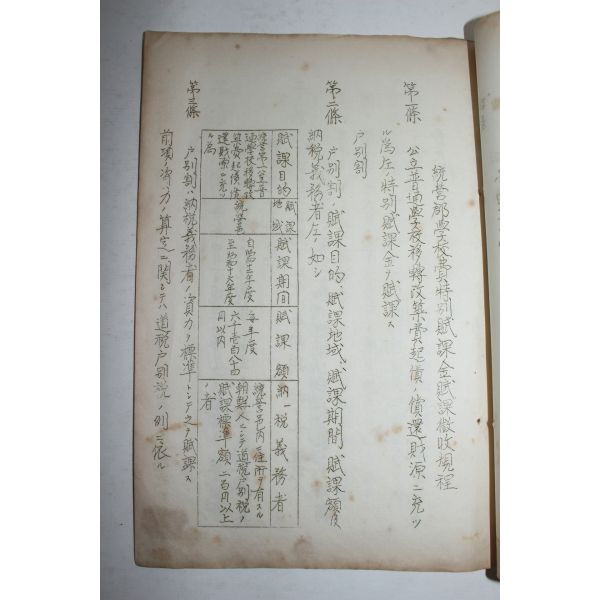 統営郡學校費特別賦課金賦課徴收規程
第一條 公立普通學校移轉改築費起債ノ償還財源ニ充ツ
ル為左ノ特別賦課金ヲ賦課ス
戸別割
第二條 戸別割ノ賦課目的、賦課地域、賦課期間、賦課額及
納税義務者左ノ如シ
賦課目的
賦課地域
賦課期間
賦課額
納税義務者
統營第一公立普
通學校移轉改
築費起債償
還財源ニ充ツ
ル為
統營邑
自昭和十二年度
至昭和十六年度
毎年度
六千壹百八十四
円以内
統營邑内ニ住所ヲ有スル
朝鮮人ニシテ道税戸別税ノ
賦課標準額二百円以上
ノ者
第三條 戸別割ハ納税義務者ノ資力ヲ標準トシテ之ヲ賦課ス
前項ノ資力ノ算定ニ関シテハ道税戸別税ノ例ニ依ル